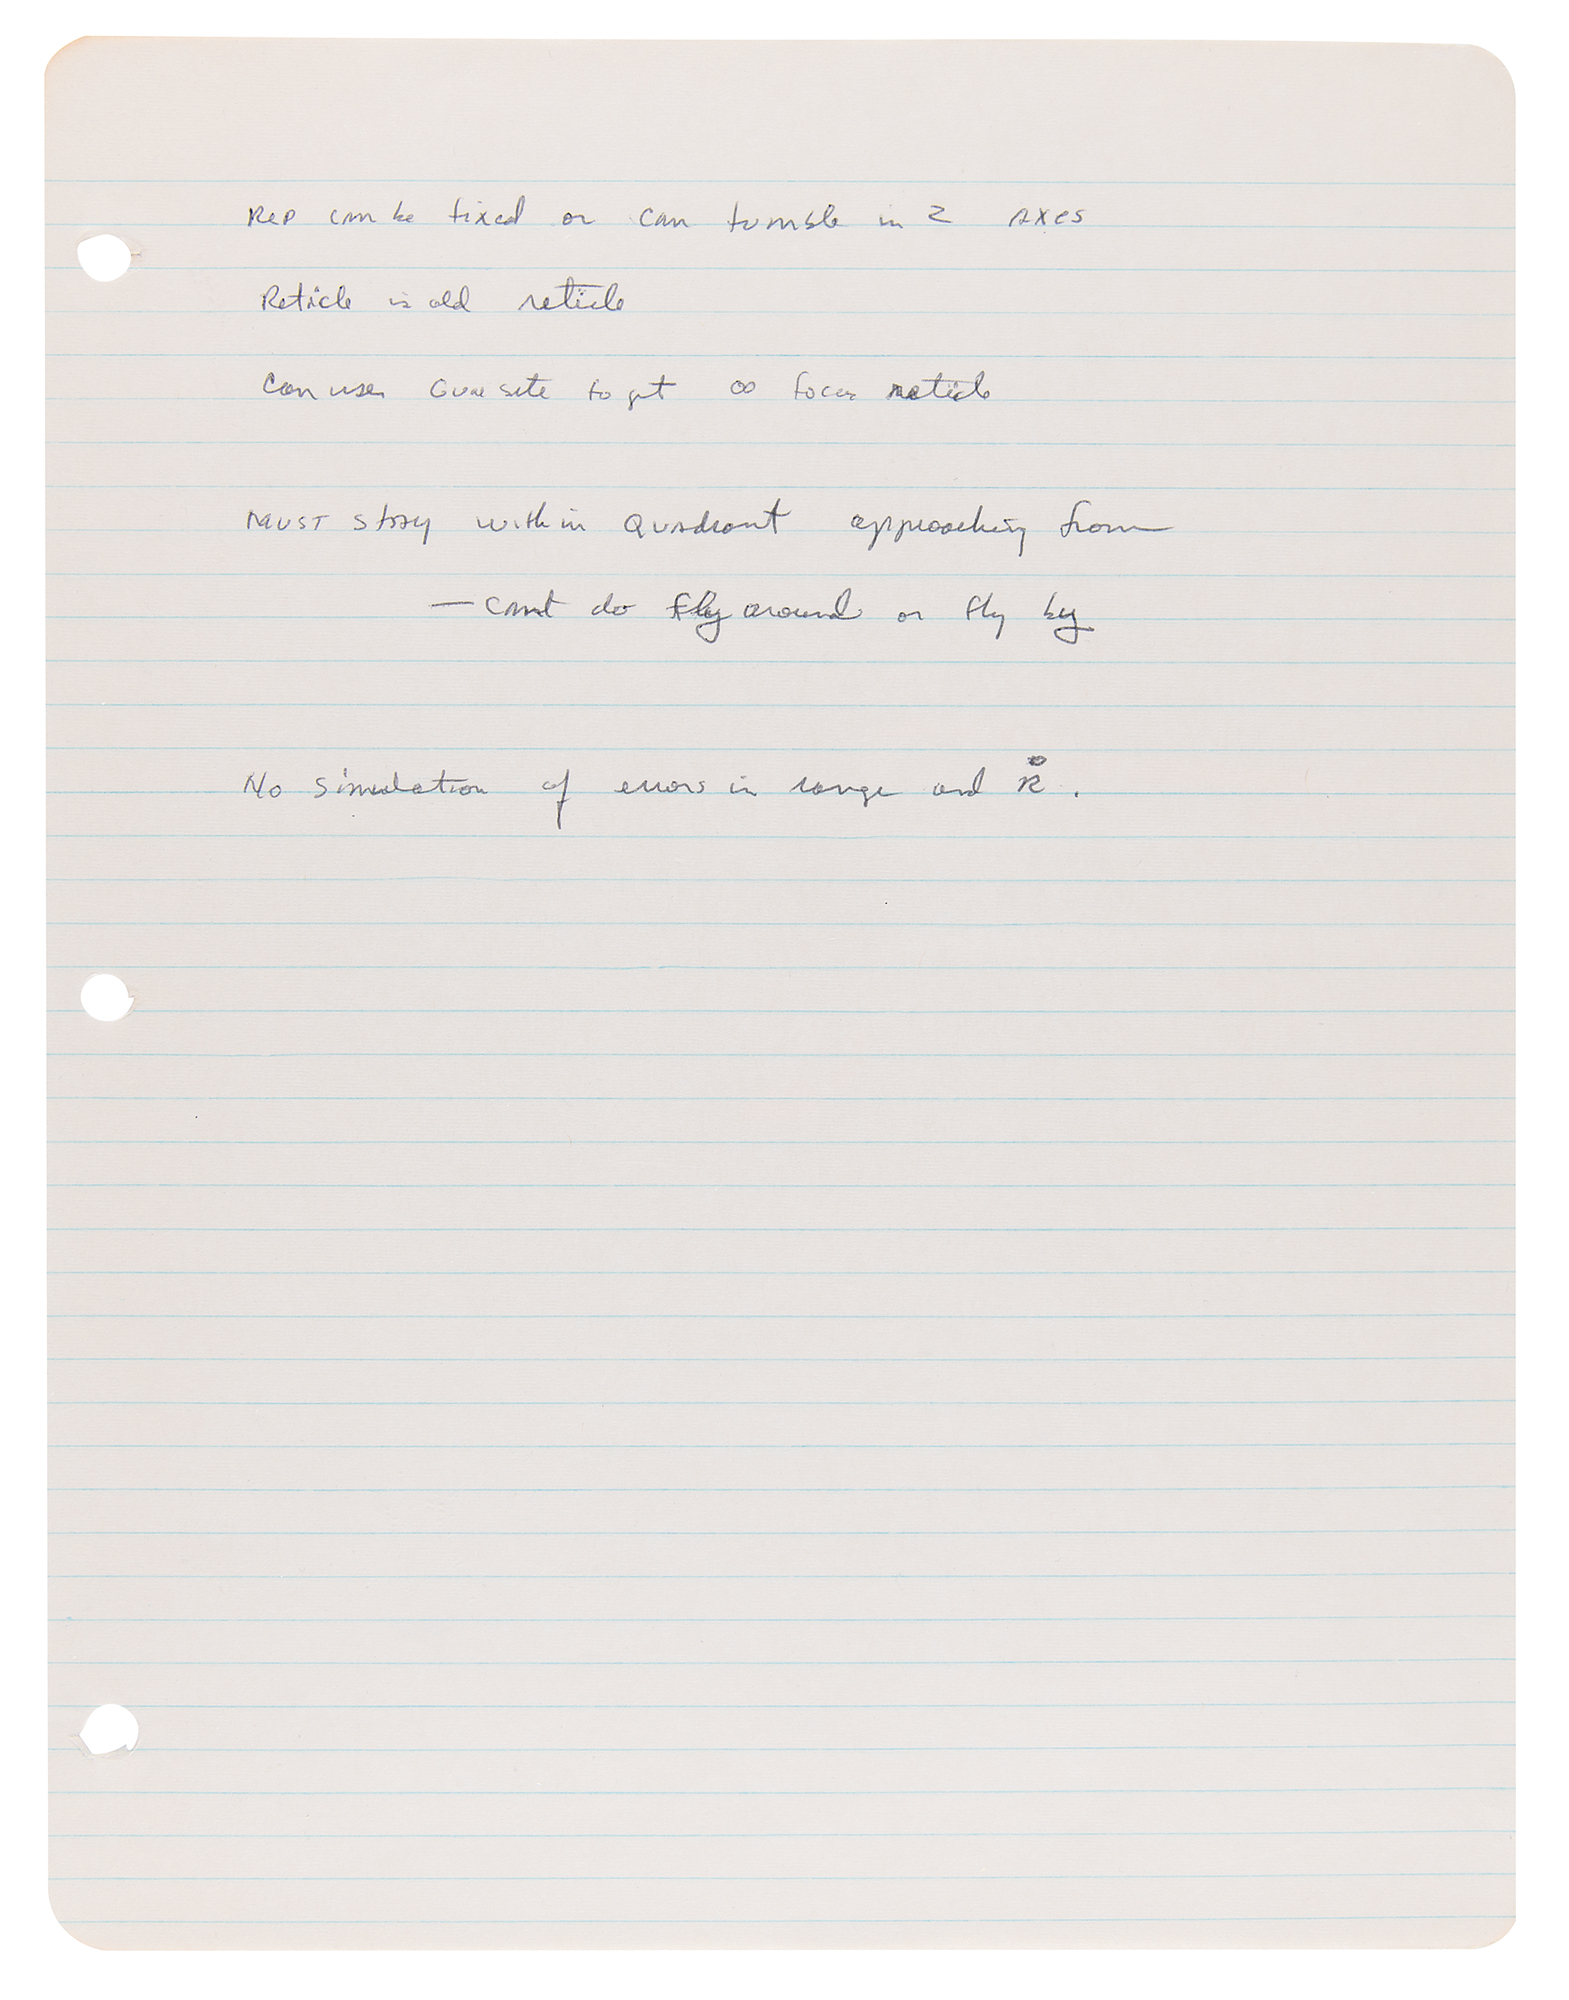 REP can be fixed or can tumble in 2 axes
Reticle is old reticle
Can use Gun site to get ∞ focus reticle
Must stay within Quadrant approaching from
— Cant do fly around or fly by
No Simulation of errors in range and Ṙ.